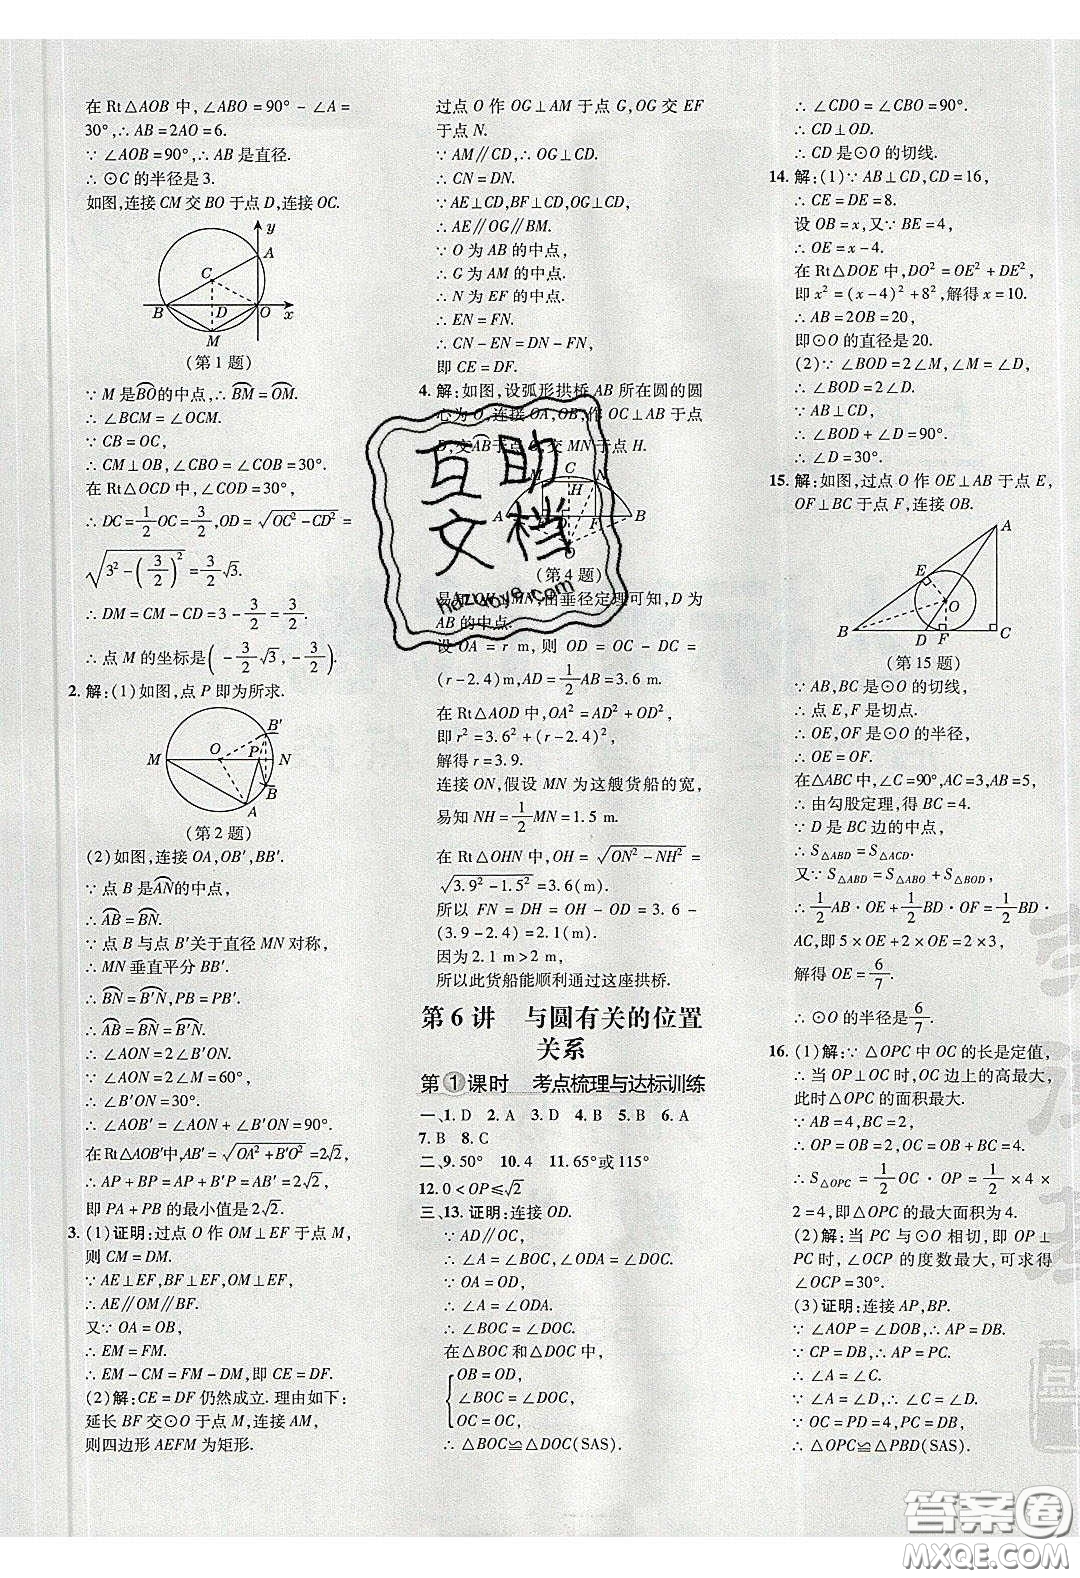 在 Rt△AOB 中,∠ABO = 90° − ∠A =
30°,∴ AB = 2AO = 6.
∵ ∠AOB = 90°,∴ AB 是直径.
∴ ⊙C 的半径是 3.
如图,连接 CM 交 BO 于点 D,连接 OC.
y
A
C
B D O x
M
(第 1 题)
∵ M 是⌒BO的中点,∴ ⌒BM = ⌒OM.
∴ ∠BCM = ∠OCM.
∵ CB = OC,
∴ CM⊥OB,∠CBO = ∠COB = 30°.
在 Rt△OCD 中,∠COD = 30°,
∴ DC = 1/2 OC = 3/2, OD = √(OC² − CD²) =
√(3² − (3/2)²) = 3/2 √3.
∴ DM = CM − CD = 3 − 3/2 = 3/2.
∴ 点 M 的坐标是( −3/2 √3, −3/2 ).
2. 解:(1)如图,点 P 即为所求.
B′
O P
M N
B
A
(第 2 题)
(2)如图,连接 OA,OB′,BB′.
∵ 点 B 是⌒AN的中点,
∴ ⌒AB = ⌒BN.
∵ 点 B 与点 B′关于直径 MN 对称,
∴ MN 垂直平分 BB′.
∴ ⌒BN = ⌒B′N, PB = PB′.
∴ ⌒AB = ⌒BN = ⌒B′N.
∵ ∠AON = 2∠B′ON = 60°.
∴ ∠B′ON = 30°.
∴ ∠AOB′ = ∠AON + ∠B′ON = 90°.
在 Rt△AOB′中,AB′ = √(OA² + B′O²) = 2√2,
∴ AP + BP = AP + B′P = AB′ = 2√2,
即 PA + PB 的最小值是 2√2.
3. (1)证明:过点 O 作 OM⊥EF 于点 M,
则 CM = DM.
∵ AE⊥EF,BF⊥EF,OM⊥EF,
∴ AE∥OM∥BF.
又∵ OA = OB,
∴ EM = FM.
∴ EM − CM = FM − DM,即 CE = DF.
(2)解:CE = DF 仍然成立. 理由如下:
延长 BF 交⊙O 于点 M,连接 AM,
则四边形 AEFM 为矩形.
过点 O 作 OG⊥AM 于点 G,OG 交 EF
于点 N.
∵ AM∥CD,∴ OG⊥CD.
∴ CN = DN.
∵ AE⊥CD,BF⊥CD,OG⊥CD,
∴ AE∥OG∥BM.
∵ O 为 AB 的中点,
∴ G 为 AM 的中点.
∴ N 为 EF 的中点.
∴ EN = FN.
∴ CN − EN = DN − FN,
即 CE = DF.
4. 解:如图,设弧形拱桥 AB 所在圆的圆
心为 O,连接 OA,OB,作 OC⊥AB 于点
D,交⌒AB于点 C,交 MN 于点 H.
M C N
H
A F B
(第 4 题)
互助
文档
hdzuoye.com
MN,由垂径定理可知,D 为
AB 的中点.
设 OA = r m,则 OD = OC − DC =
(r − 2.4) m, AD = 1/2 AB = 3.6 m.
在 Rt△AOD 中,OA² = AD² + OD²,
即 r² = 3.6² + (r − 2.4)²,
解得 r = 3.9.
连接 ON,假设 MN 为这艘货船的宽,
易知 NH = 1/2 MN = 1.5 m.
在 Rt△OHN 中,OH = √(ON² − NH²) =
√(3.9² − 1.5²) = 3.6 (m).
所以 FN = DH = OH − OD = 3.6 −
(3.9 − 2.4) = 2.1(m).
因为 2.1 m > 2 m,
所以此货船能顺利通过这座拱桥.
第 6 讲 与圆有关的位置
关系
第①课时 考点梳理与达标训练
一、1. D 2. A 3. D 4. B 5. B 6. A
7. B 8. C
二、9. 50° 10. 4 11. 65°或 115°
12. 0 < OP ≤ √2
三、13. 证明:连接 OD.
∵ AD∥OC,
∴ ∠A = ∠BOC,∠ODA = ∠DOC.
∵ OA = OD,
∴ ∠A = ∠ODA.
∴ ∠BOC = ∠DOC.
在△BOC 和△DOC 中,
OB = OD,
∠BOC = ∠DOC,
OC = OC,
∴ △BOC≌△DOC(SAS).
∴ ∠CDO = ∠CBO = 90°.
∴ CD⊥OD.
∴ CD 是⊙O 的切线.
14. 解:(1)∵ AB⊥CD,CD = 16,
∴ CE = DE = 8.
设 OB = x,又∵ BE = 4,
∴ OE = x − 4.
在 Rt△DOE 中,DO² = OE² + DE²,
即 x² = (x − 4)² + 8²,解得 x = 10.
∴ AB = 2OB = 20,
即⊙O 的直径是 20.
(2)∵ ∠BOD = 2∠M,∠M = ∠D,
∴ ∠BOD = 2∠D.
∵ AB⊥CD,
∴ ∠BOD + ∠D = 90°.
∴ ∠D = 30°.
15. 解:如图,过点 O 作 OE⊥AB 于点 E,
OF⊥BC 于点 F,连接 OB.
A
E
O
B D F C
(第 15 题)
∵ AB,BC 是⊙O 的切线,
∴ 点 E,F 是切点.
∴ OE,OF 是⊙O 的半径.
∴ OE = OF.
在△ABC 中,∠C = 90°,AC = 3,AB = 5,
∴ 由勾股定理,得 BC = 4.
∵ D 是 BC 边的中点,
∴ S△ABD = S△ACD.
又∵ S△ABD = S△ABO + S△BOD,
∴ 1/2 AB · OE + 1/2 BD · OF = 1/2 CD ·
AC,即 5 × OE + 2 × OE = 2 × 3,
解得 OE = 6/7.
∴ ⊙O 的半径是 6/7.
16. (1)解:∵ △OPC 中 OC 的长是定值,
∴ 当 OP⊥OC 时,OC 边上的高最大,
此时△OPC 的面积最大.
∵ AB = 4, BC = 2,
∴ OP = OB = 2,OC = OB + BC = 4.
∴ S△OPC = 1/2 OC · OP = 1/2 × 4 ×
2 = 4,即△OPC 的最大面积为 4.
(2)解:当 PC 与⊙O 相切,即 OP⊥
PC 时,∠OCP 的度数最大,可求得
∠OCP = 30°.
(3)证明:连接 AP,BP.
∵ ∠AOP = ∠DOB,∴ AP = DB.
∵ CP = DB,∴ AP = PC.
∴ ∠A = ∠C.
∵ ∠A = ∠D,∴ ∠C = ∠D.
∵ OC = PD = 4,PC = DB,
∴ △OPC≌△PBD(SAS).
答案圈
MXQE.COM